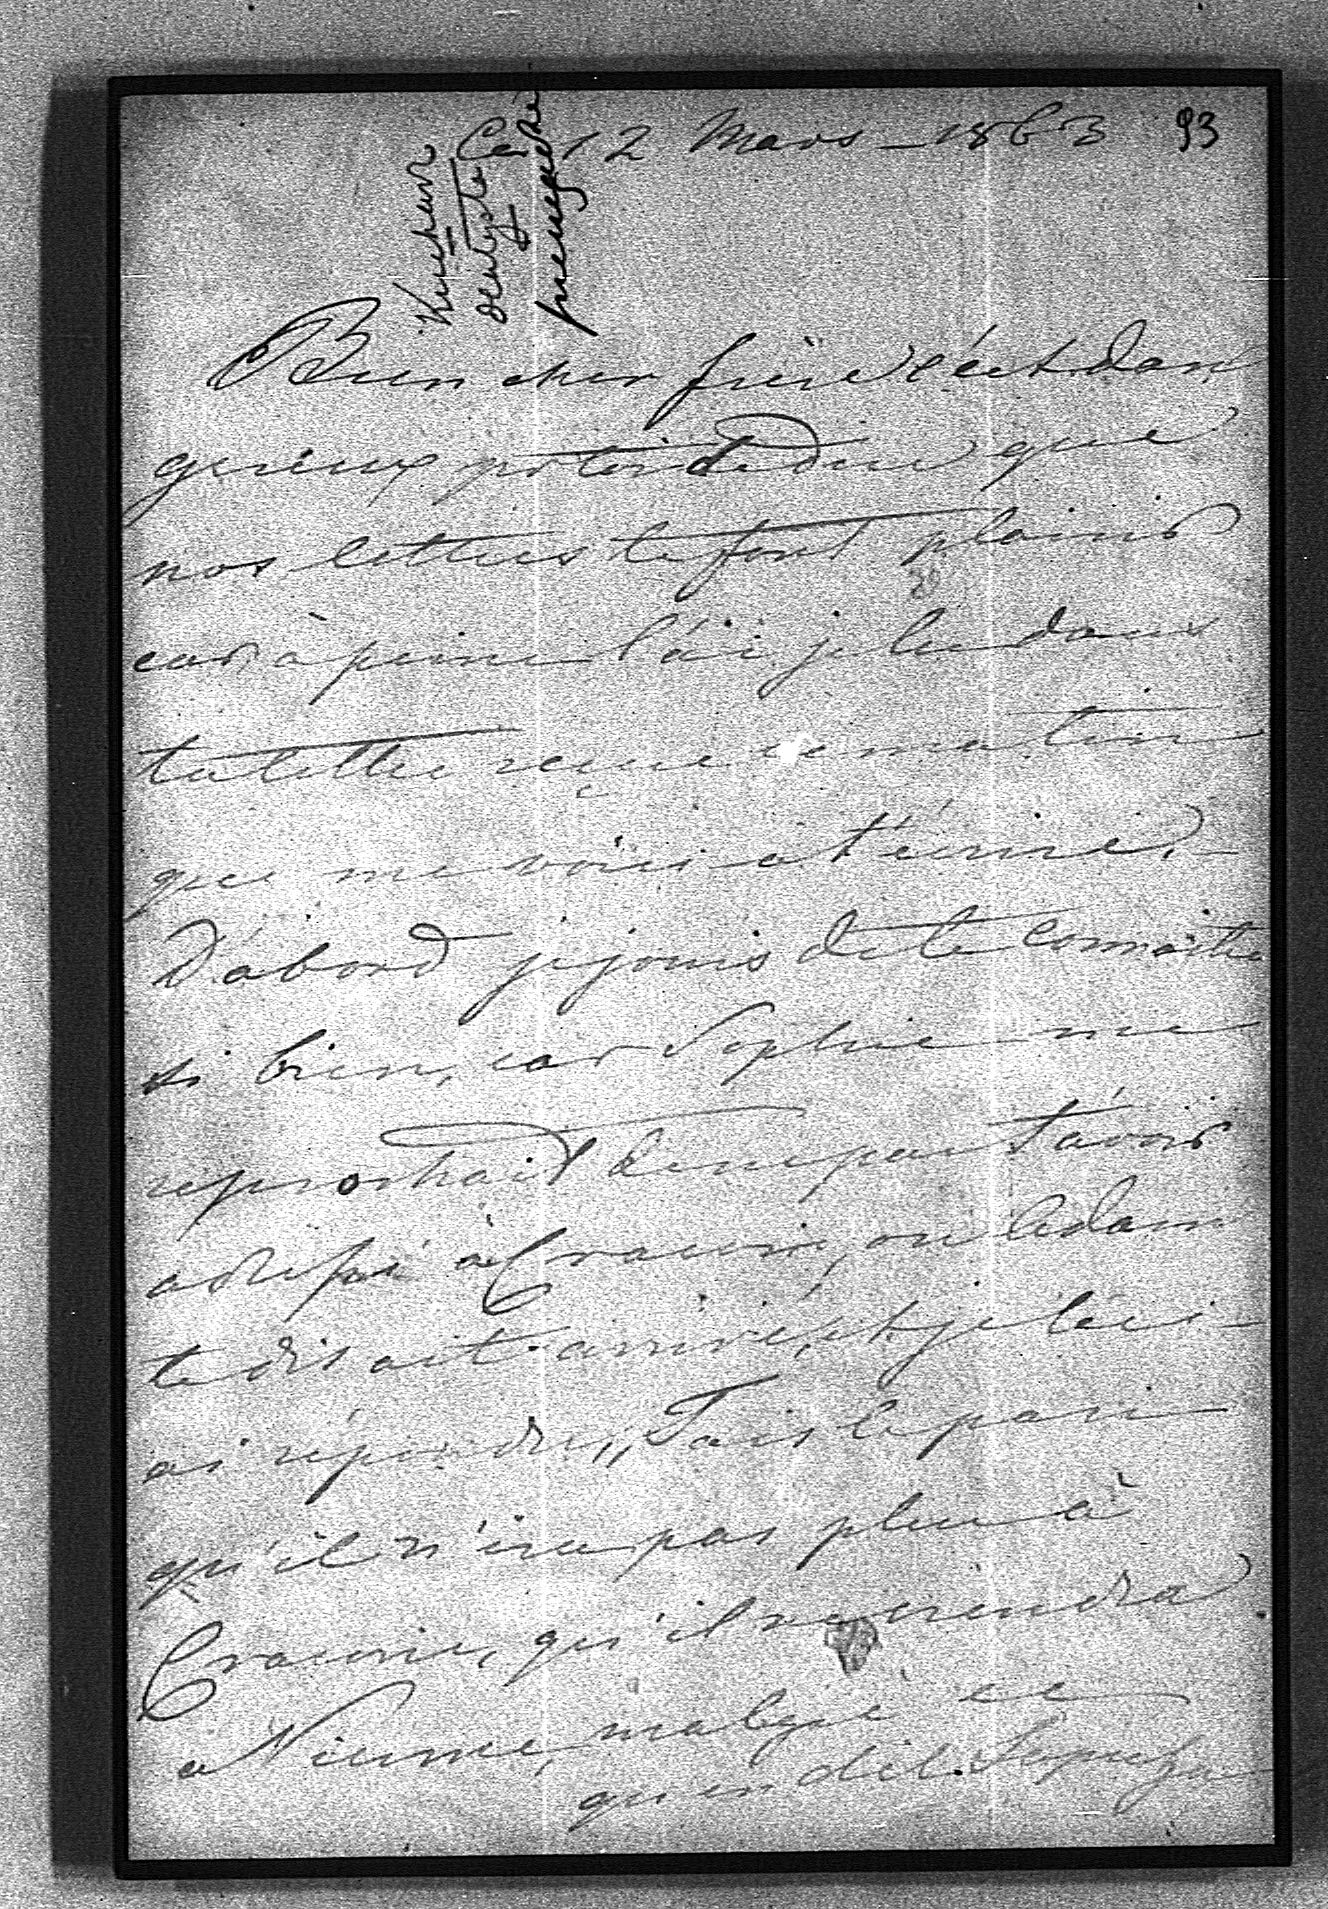 Ce 12 Mars - 1863 93
Bien cher frère c'est dan
gereux po toi de dire que
nos lettres te font plaisir
car à peine l'ai je lu dans
ta lettre reçue ce matin
que me voici a t'écrire. -
D'abord je jouis de te connaître
si bien, car Sophie me
reprochait de ne pas t'avoir
adressé à Cracovie, ou Adam
te disait arrivé, et je lui
ai répondu, „Fais le pari
qu'il n'ira pas plus à
Cracovie, qu'il ne viendra
a Vienne, malgré ce
qu'en dit